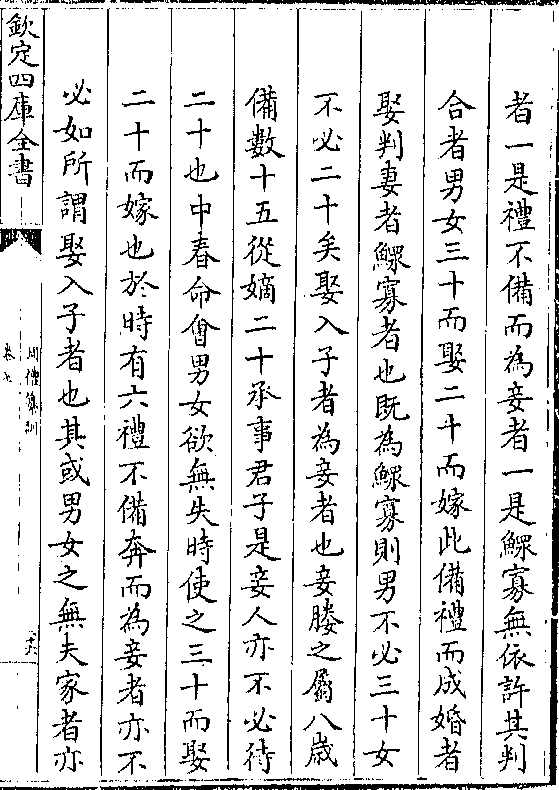 者一是禮不備而為妾者一是鰥寡無依許其判
合者男女三十而娶二十而嫁此備禮而成婚者
娶判妻者鰥寡者也既為鰥寡則男不必三十女
不必二十矣娶入子者為妾者也妾媵之屬八歲
備數十五從嫡二十承事君子是妾人亦不必待
二十也中春命會男女欲無失時使之三十而娶
二十而嫁也於時有六禮不備奔而為妾者亦不
必如所謂娶入子者也其或男女之無夫家者亦
欽定四庫全書
周禮纂訓
卷七
二十六